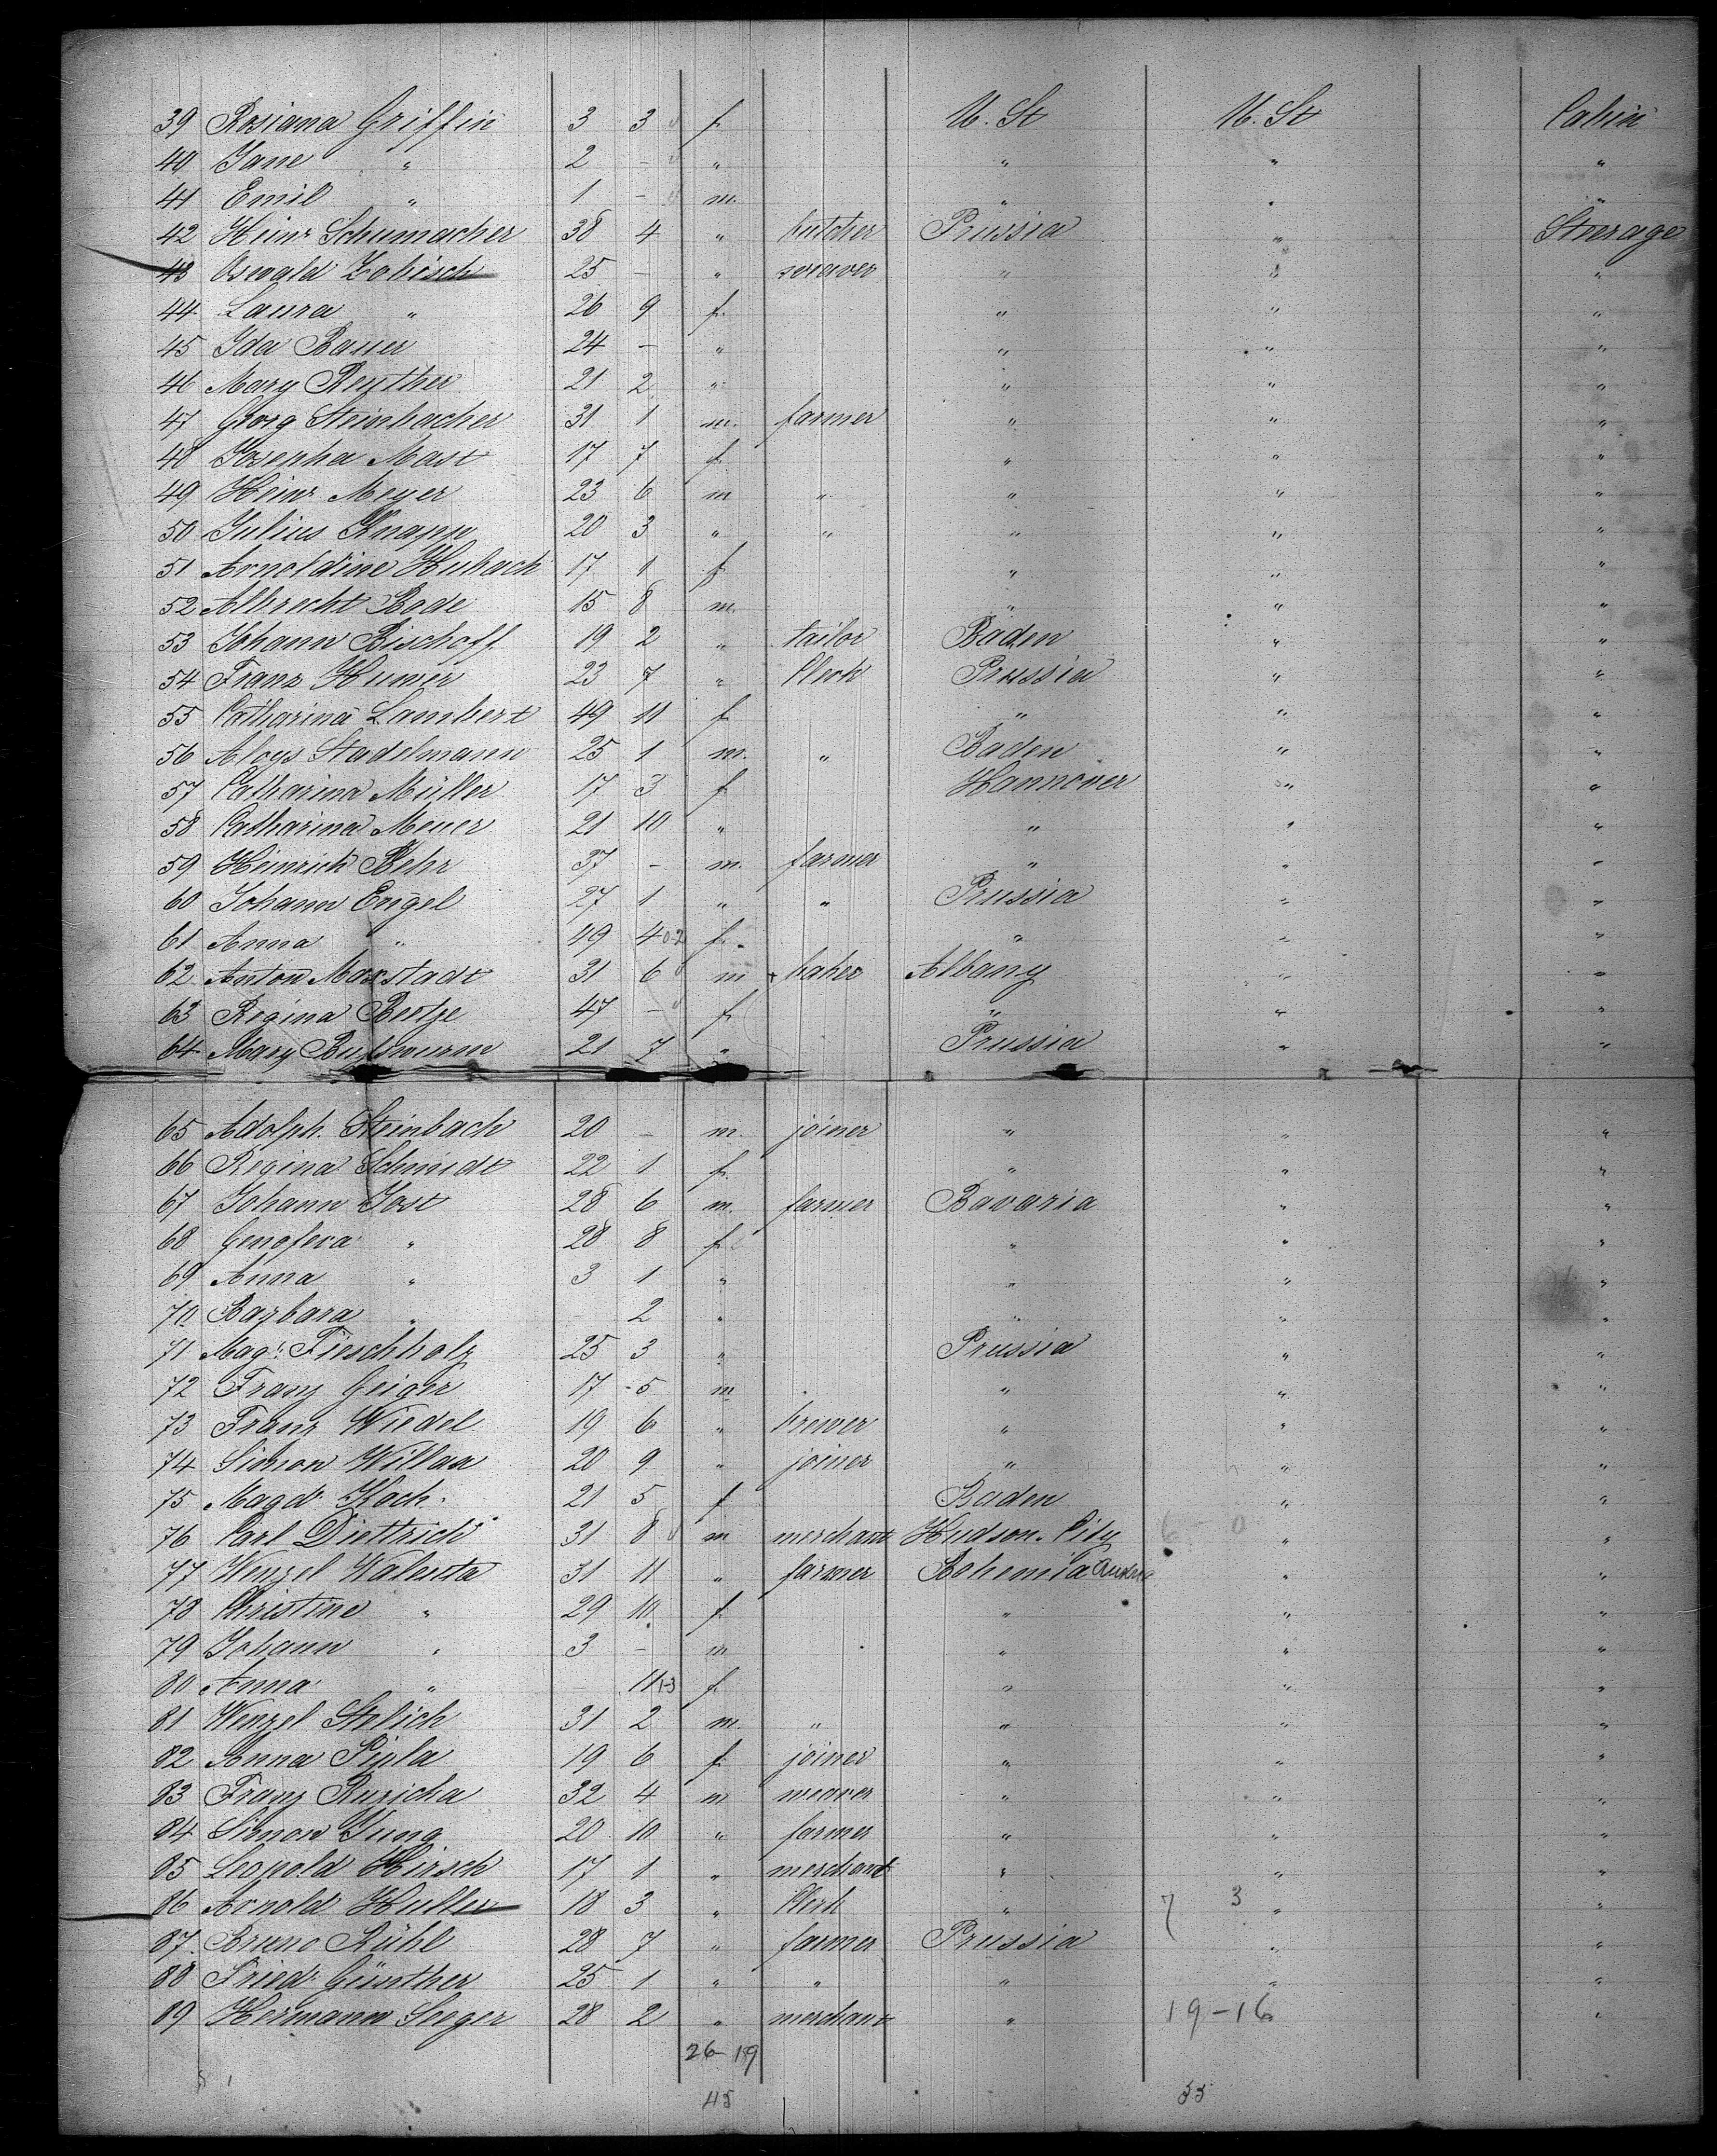 39 Rosiana Griffin 3 3 f. U. St U. St Cabin
40 Jane " 2 - " " " "
41 Emil " 1 - m. " " "
42 Heinr Schumacher 38 4 " butcher Prussia " Steerage
43 Oswald Zobisch 25 - " weaver " " "
44 Laura " 26 9 f. " " "
45 Ida Bauer 24 - " " " "
46 Mary Reyther 21 2 " " " "
47 Georg Steinbacher 31 1 m. farmer " " "
48 Josepha Mast 17 7 f " " "
49 Heinr Meyer 23 6 m " " " "
50 Julius Knapp 20 3 " " " " "
51 Arnoldine Hubach 17 1 f " " "
52 Albrecht Bode 15 8 m. " " "
53 Johann Bischoff 19 2 " tailor Baden " "
54 Franz Huwer 23 7 " Clerk Prussia " "
55 Catharina Lambert 49 11 f " " "
56 Aloys Stadelmann 25 1 m. " Baden " "
57 Catharina Müller 17 3 f Hannover " "
58 Catharina Meyer 21 10 " " " "
59 Heinrich Behr 37 - m. farmer " " "
60 Johann Engel 27 1 " " Prussia " "
61 Anna " 49 4 f. " " "
62 Anton Maxstadt 31 6 m baker Albany " "
63 Regina Bertge 47 - f " " "
64 Mary 21 7 " Prussia " "
65 Adolph. Steinbach 20 - m. joiner " " "
66 Regina Schmidt 22 1 f. " " "
67 Johann Jost 28 6 m. farmer Bavaria " "
68 Genofeva " 28 8 f " " "
69 Anna " 3 1 " " " "
70 Barbara " 2 " " " "
71 Mag: Fieschholz 25 3 " Prussia " "
72 Franz Geiger 17 5 m " " "
73 Franz Wiedel 19 6 " brewer " " "
74 Simon Willax 20 9 " joiner " " "
75 Magd. Koch. 21 5 f Baden " "
76 Carl Diettrich 31 8 m merchant Hudson. City " "
77 Wenzel Walenta 31 11 " farmer Bohemia " "
78 Christine " 29 10 f " " "
79 Johann " 3 - m " " "
80 Anna " 11 f. " " "
81 Wenzel Stelich 31 2 m. " " " "
82 Anna Pipla 19 6 f joiner " " "
83 Franz Ruzicha 32 4 m weaver " " "
84 Simon Jung 20 10 " farmer " " "
85 Leopold Hirsch 17 1 " merchant " " "
86 Arnold Hutter 18 3 " Clerk " 7 3 " "
87. Bruno Rühl 28 7 " farmer Prussia " "
88 Fried. Günther 25 1 " " " " "
89 Hermann Seeger 28 2 " merchant " 19-16 "
26-19
45 35